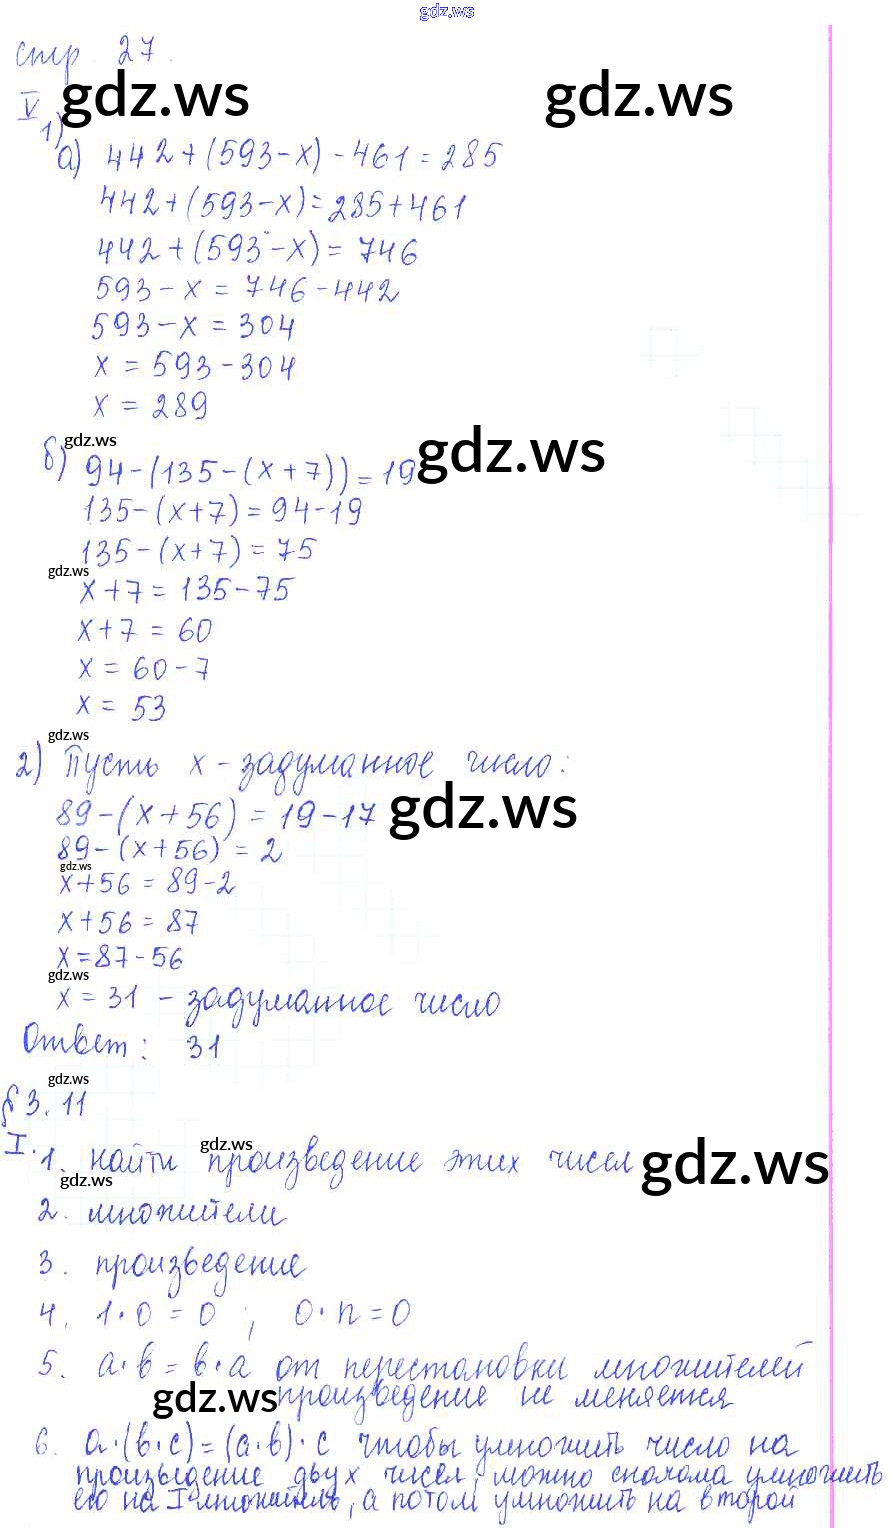 gdz.ws
стр. 27.
gdz.ws gdz.ws
V 1)
а) 442+(593-x)-461=285
442+(593-x)=285+461
442+(593-x)=746
593-x=746-442
593-x=304
x=593-304
x=289
gdz.ws
б) 94-(135-(x+7))=19 gdz.ws
135-(x+7)=94-19
135-(x+7)=75
gdz.ws
x+7=135-75
x+7=60
x=60-7
x=53
gdz.ws
2) Пусть x-задуманное число:
89-(x+56)=19-17 gdz.ws
89-(x+56)=2
gdz.ws
x+56=89-2
x+56=87
x=87-56
gdz.ws
x=31 - задуманное число
Ответ: 31
gdz.ws
§ 3.11
gdz.ws
I. 1. найти произведение этих чисел gdz.ws
gdz.ws
2. множители
3. произведение
4. 1·0=0 ; 0·n=0
5. a·b=b·a от перестановки множителей
gdz.ws произведение не меняется
6. a·(b·c)=(a·b)·c чтобы умножить число на
произведение двух чисел, можно сначала умножить
его на I множитель, а потом умножить на второй